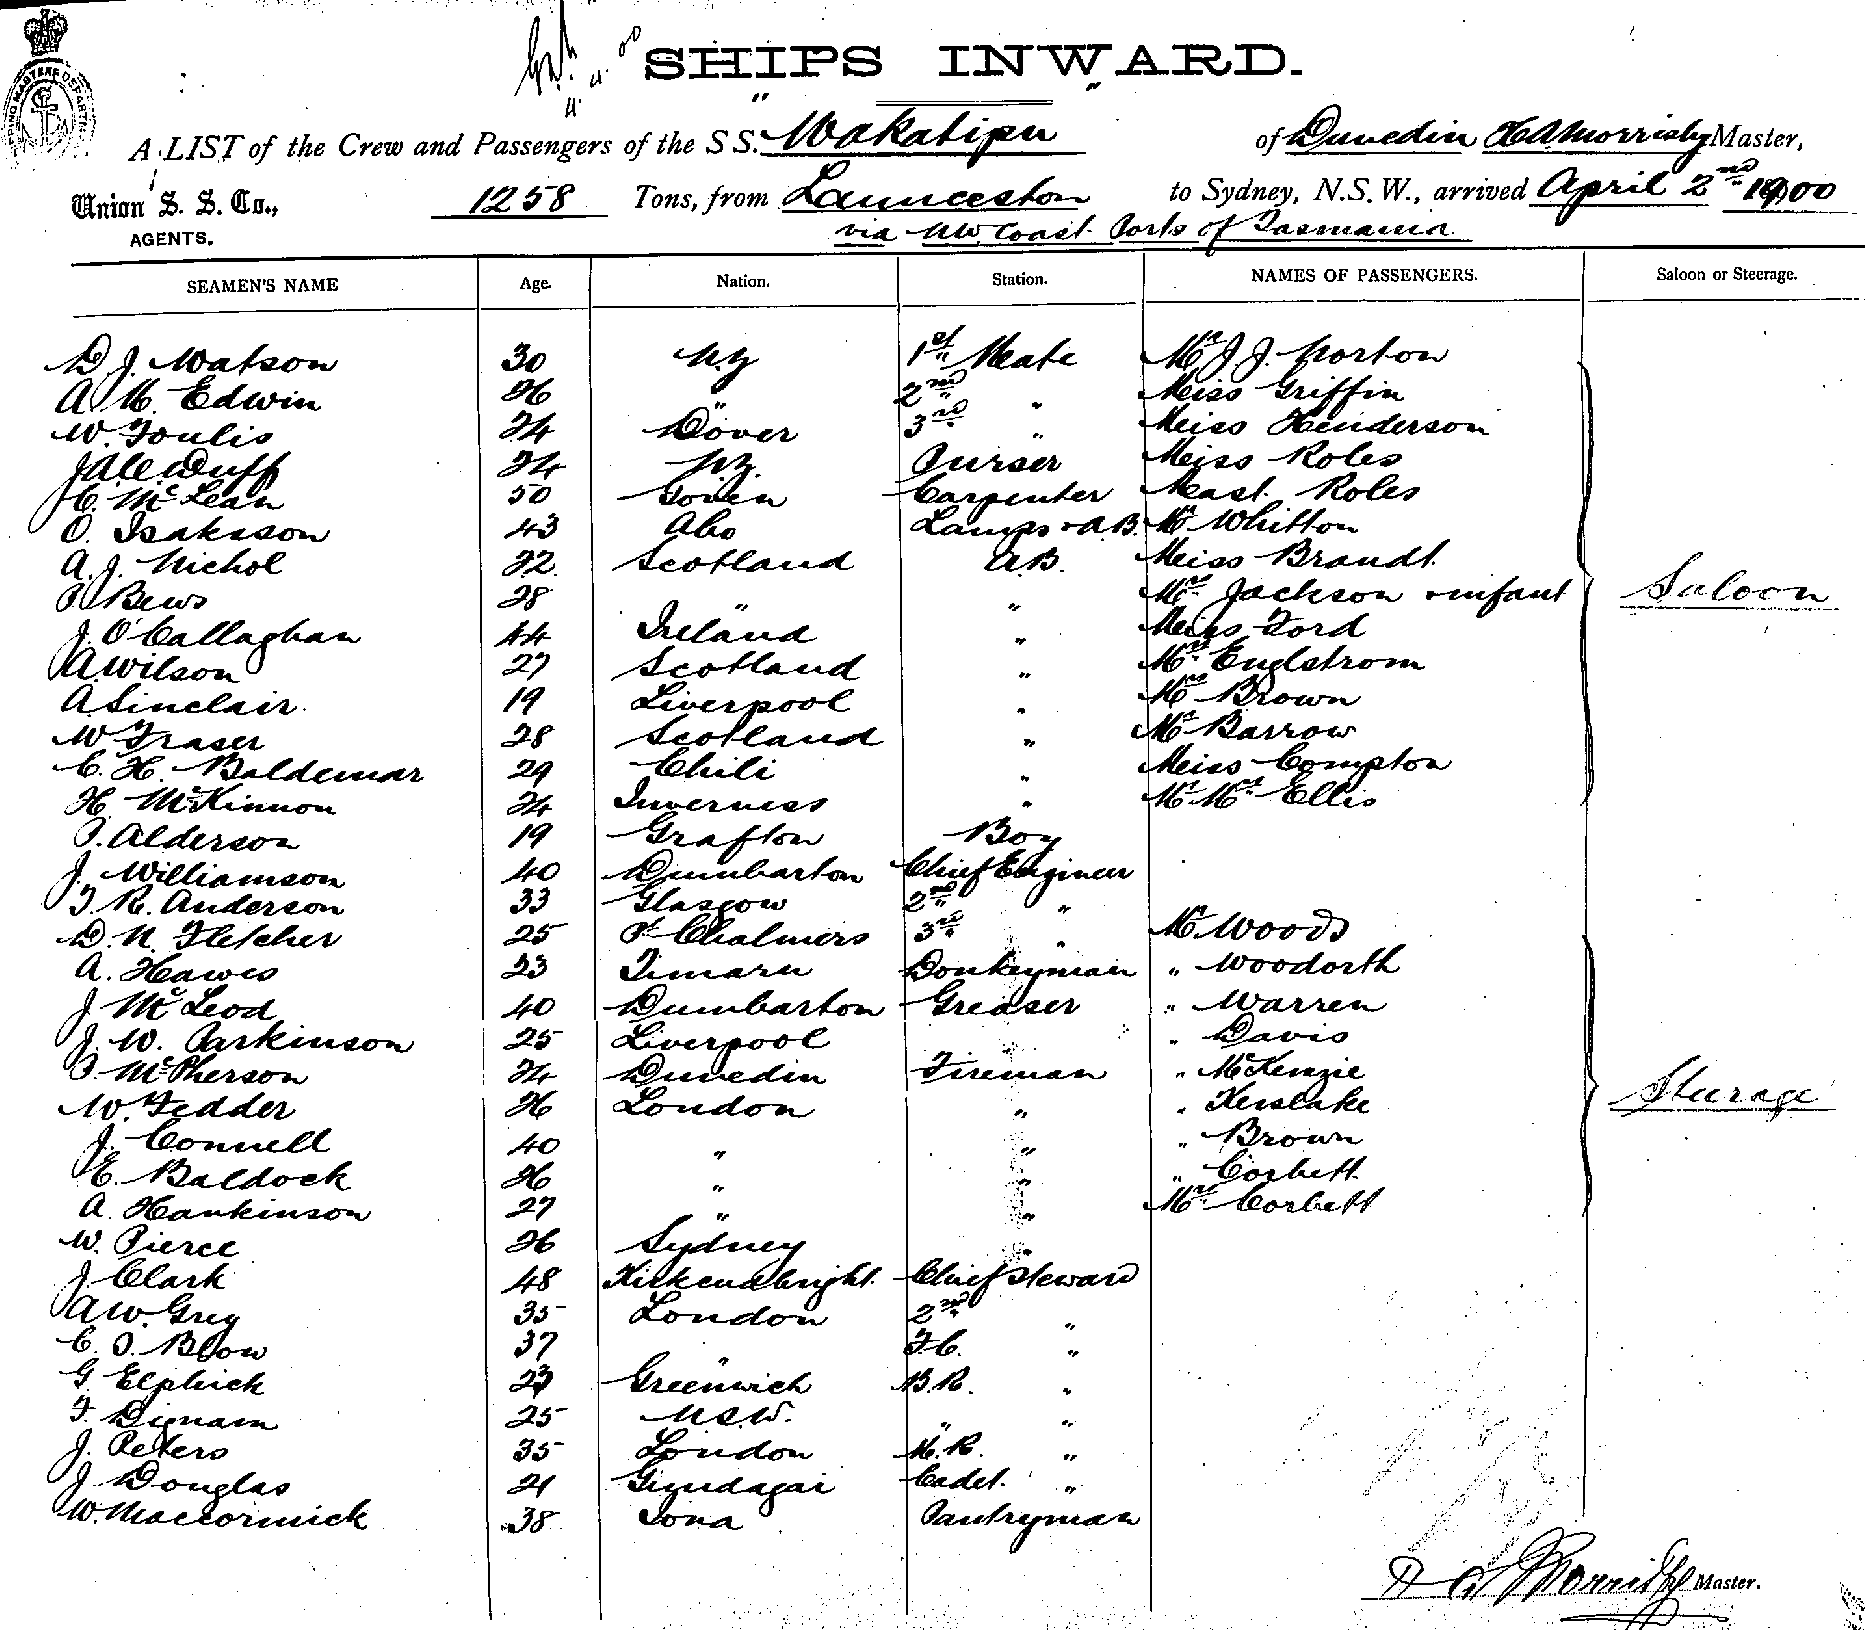 SHIPS INWARD.
A LIST of the Crew and Passengers of the S S. Wakatipu of Dunedin H A Morrisby Master,
Union S. S. Co., 1258 Tons, from Launceston to Sydney, N.S.W., arrived April 2nd 1900
AGENTS. via N W Coast Ports of Tasmania
SEAMEN'S NAME Age. Nation. Station. NAMES OF PASSENGERS. Saloon or Steerage.
D. J. Watson 30 N.Z 1st Mate Mr J. J. Norton
A M. Edwin 26 " 2nd " Miss Griffin
W. Foulis 24 Dover 3rd " Miss Henderson
J A C Duff 24 N.Z. Purser Miss Roles
C. McLean 50 Govan Carpenter Mast. Roles
O. Isaksson 43 Abo Lamps & A.B. Mr Whitton
A. J. Nichol 22 Scotland A.B. Miss Brandt
P. Bews 28 " " Mrs Jackson & infant Saloon
J. O'Callaghan 44 Ireland " Miss Ford
A. Wilson 27 Scotland " Mrs Englstrom
A. Sinclair. 19 Liverpool " Mrs Brown
W Fraser 28 Scotland " Mr Barrow
C. H. Baldemar 29 Chili " Miss Compton
H. McKinnon 24 Inverness " Mr Mrs Ellis
P. Alderson 19 Grafton Boy
J. Williamson 40 Dumbarton Chief Engineer
T. R. Anderson 33 Glasgow 2nd "
D. N. Fletcher 25 Pt Chalmers 3rd " Mr Woods
A. Hawes 23 Timaru Donkeyman " Woodorth
J McLeod 40 Dumbarton Greaser " Warren
J. W. Parkinson 25 Liverpool " " Davis
P. McPherson 24 Dunedin Fireman " McKenzie
W. Fedder 26 London " " Kerslake Steerage
J. Connell 40 " " " Brown
E. Baldock 26 " " " Corbett
A. Hankinson 27 " " Mrs Corbett
W. Pierce 26 Sydney "
J Clark 48 Kirkcudbright. Chief Steward
A W. Grey 35 London 2nd "
C. J. Blow 37 " F.C. "
G Elphick 23 Greenwich B.R. "
F. Dignam 25 N.S.W. " "
J. Peters 35 London M.R. "
J Douglas 21 Gundagai Cadet. "
W. Maccormick 38 Iona Pantryman
H A Morrisby Master.